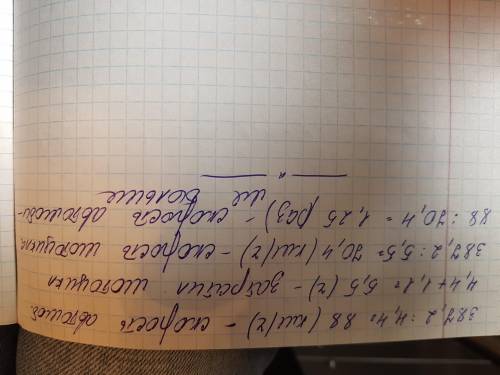 387,2 : 4,4 = 88 (км/ч) – скорость автомоб.
4,4 + 1,1 = 5,5 (ч) – затратил мотоцикл
387,2 : 5,5 = 70,4 (км/ч) – скорость мотоцикл.
88 : 70,4 = 1,25 раз) – скорость автомоби-
ля больше